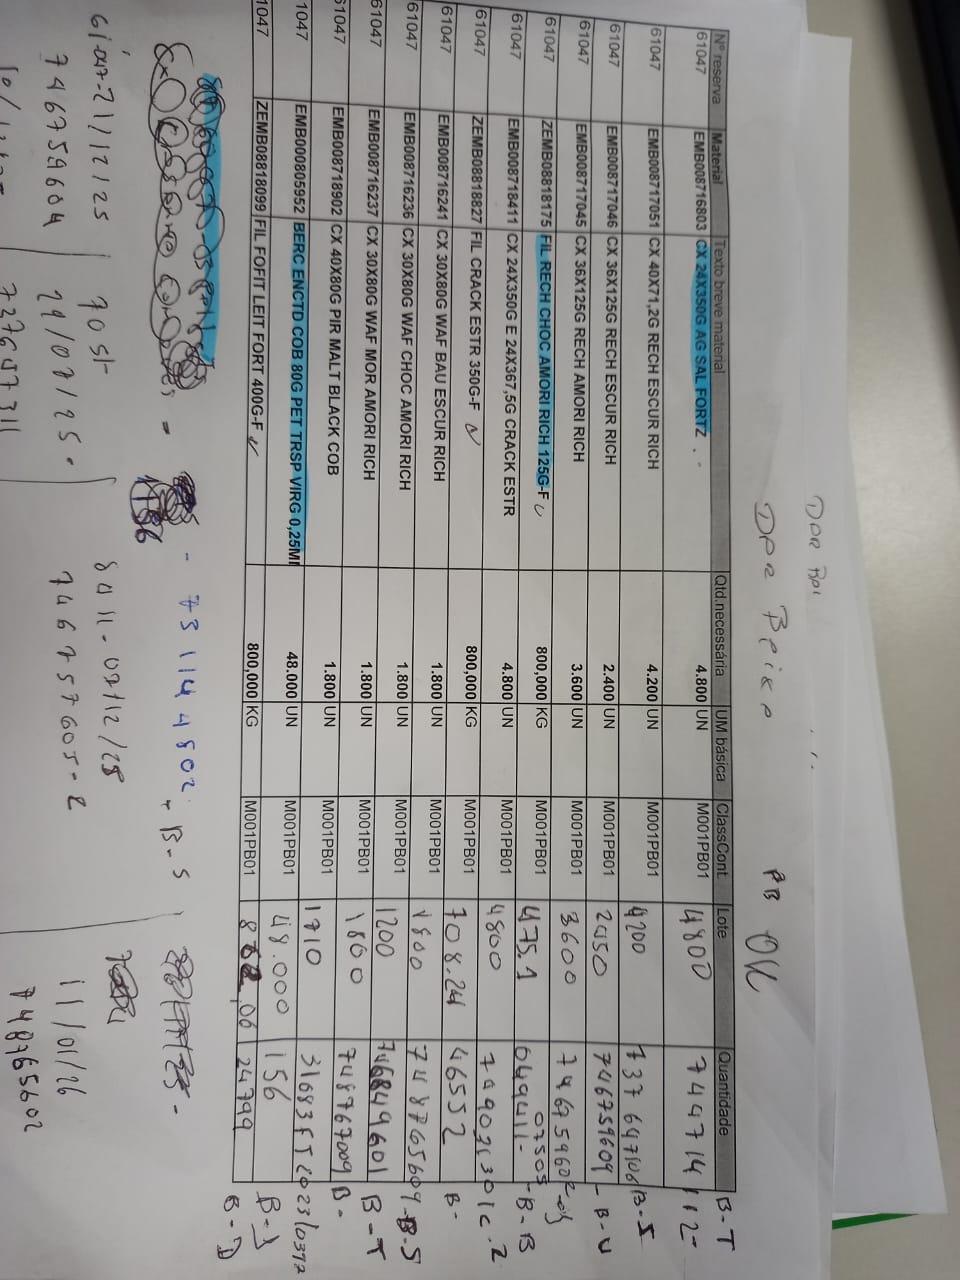 DPR
DPR Beixa PB OK
Nº reserva Material Texto breve material Qtd.necessária UM básica ClassCont. Lote Quantidade B-T
61047 EMB008716803 CX 24X350G AG SAL FORTZ 4.800 UN M001PB01 4800 744714112-
61047 EMB008717051 CX 40X71,2G RECH ESCUR RICH 4.200 UN M001PB01 4200 737647106 B-S
61047 EMB008717046 CX 36X125G RECH ESCUR RICH 2.400 UN M001PB01 2450 746759609 - B-U
61047 EMB008717045 CX 36X125G RECH AMORI RICH 3.600 UN M001PB01 3600 746759602
61047 ZEMB08818175 FIL RECH CHOC AMORI RICH 125G-F 800,000 KG M001PB01 475.1 07505 049411- - B-B
61047 EMB008718411 CX 24X350G E 24X367,5G CRACK ESTR 4.800 UN M001PB01 4800
61047 ZEMB08818827 FIL CRACK ESTR 350G-F 800,000 KG M001PB01 708.24 46552 B-
61047 EMB008716241 CX 30X80G WAF BAU ESCUR RICH 1.800 UN M001PB01 1800 748765609 - B-S
61047 EMB008716236 CX 30X80G WAF CHOC AMORI RICH 1.800 UN M001PB01 1200 746849601 B-T
61047 EMB008716237 CX 30X80G WAF MOR AMORI RICH 1.800 UN M001PB01 1800 748767009 B-
61047 EMB008718902 CX 40X80G PIR MALT BLACK COB 1.800 UN M001PB01 1710 31083FT2023/0397
1047 EMB000805952 BERC ENCTD COB 80G PET TRSP VIRG 0,25MM 48.000 UN M001PB01 48.000 156 B-J
1047 ZEMB08818099 FIL FOFIT LEIT FORT 400G-F 800,000 KG M001PB01 862,06 24799 B-D
- 731144802 - B-S
1156
61047-21/12/25 705t 8011-07/12/25
746759604 29/07/25. 746757605-2 11/01/26
737657311 748765602